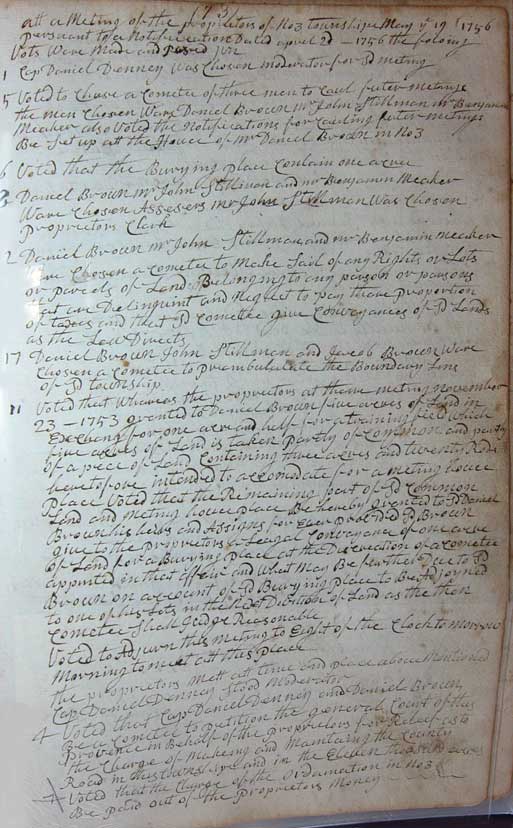 att a Meting of the propriters of No3 township May ye 19 1756
persuant to a Notification Dated aprel 2d - 1756 the folowing
Vots Ware Made and Pased viz
1 Cap Daniel Denney Was Chosen moderator for sd meting
5 Voted to Chuse a Cometee of three men to Caul futer Metings
the men Chosen Ware Daniel Brown mr John Stillman mr Benjamin
Meaker also Voted the Notifications for Cauling futer metings
Be Set up att the House of mr Daniel Brown in No3
6 Voted that the Burying Place Contain one acree
3 Daniel Brown mr John Stillman and mr Benjamin Meaker
Ware Chosen Assesers mr John Stillman Was Chosen
Proprietors Clark
2 Daniel Brown mr John Stillman and mr Benjamin Meaker
Ware Chosen a Cometee to Make Sail of any Rights or Lots
or Parcels of Land Belonging to any parson or parsons
that are Delinquent and Neglect to pay thare Proportion
of taxes and that sd Comettee give Convayances of sd Lands
as the Law Directs
17 Daniel Brown John Stillman and Jacob Brown Ware
Chosen a Cometee to Preambulate the Boundary Lins
of sd township
11 Voted that Whareas the proprietors at thare meting November
23 - 1753 granted to Daniel Brown five acres of Land in
Exchang for one acre and helf for a training feild Which
five acres of Land is taken Partly of Common and partly
of a piece of Land Containing three acres and twenty Rods
heretofore intended to accomodate for a meting house
Place Voted that the Remaining part of sd Common
Land and Meting house place Be hereby granted to sd Daniel
Brown his heirs and Assigns for Ever provided sd Brown
give to the Proprietors a Legal Convayance of one acre
of Land for a Burying Place at the Discreation of a Cometee
appinted in that affair and What May Be further Due to sd
Brown on account of sd Burying Place to Be adjoyned
to one of his Lots in the Next Divition of Land as the then
Cometee Shall Judge Reasonable
Voted to Adjurn this meting to Eight of the Clock to morrow
Morning to meet att this Place
the proprietors Mett att time and place above Mentioned
Cap Daniel Denney Stood Moderator
4 Voted that Cap Daniel Denney and Daniel Brown
Be a Cometee to Petition the general Court of this
Provence in Behalf of the Proprietors for Releef as to
the Charge of Making and Maintaing the County
Road in this township and in the Eleven thousand acres
Voted that the Charge of the ordanation in No3
Be paid out of the Proprietors Money